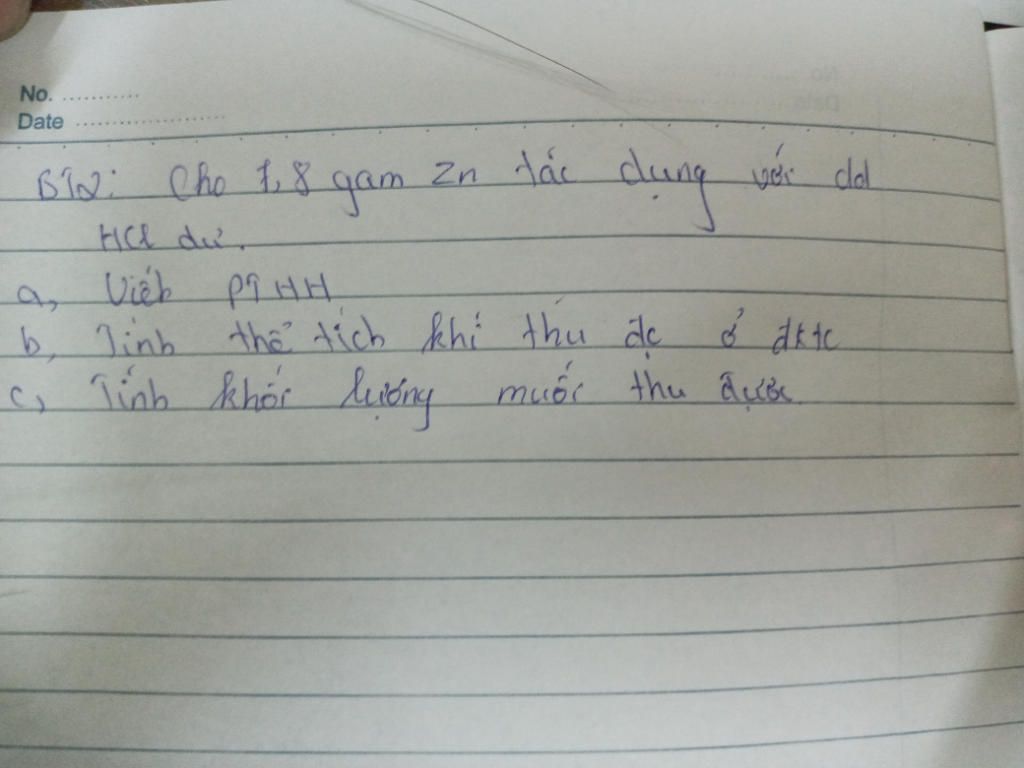 No. ...........
Date ......................
BT2: Cho 1,8 gam Zn tác dụng với dd
HCl dư.
a, Viết PTHH
b, Tính thể tích khí thu đc ở đktc
c, Tính khối lượng muối thu được.